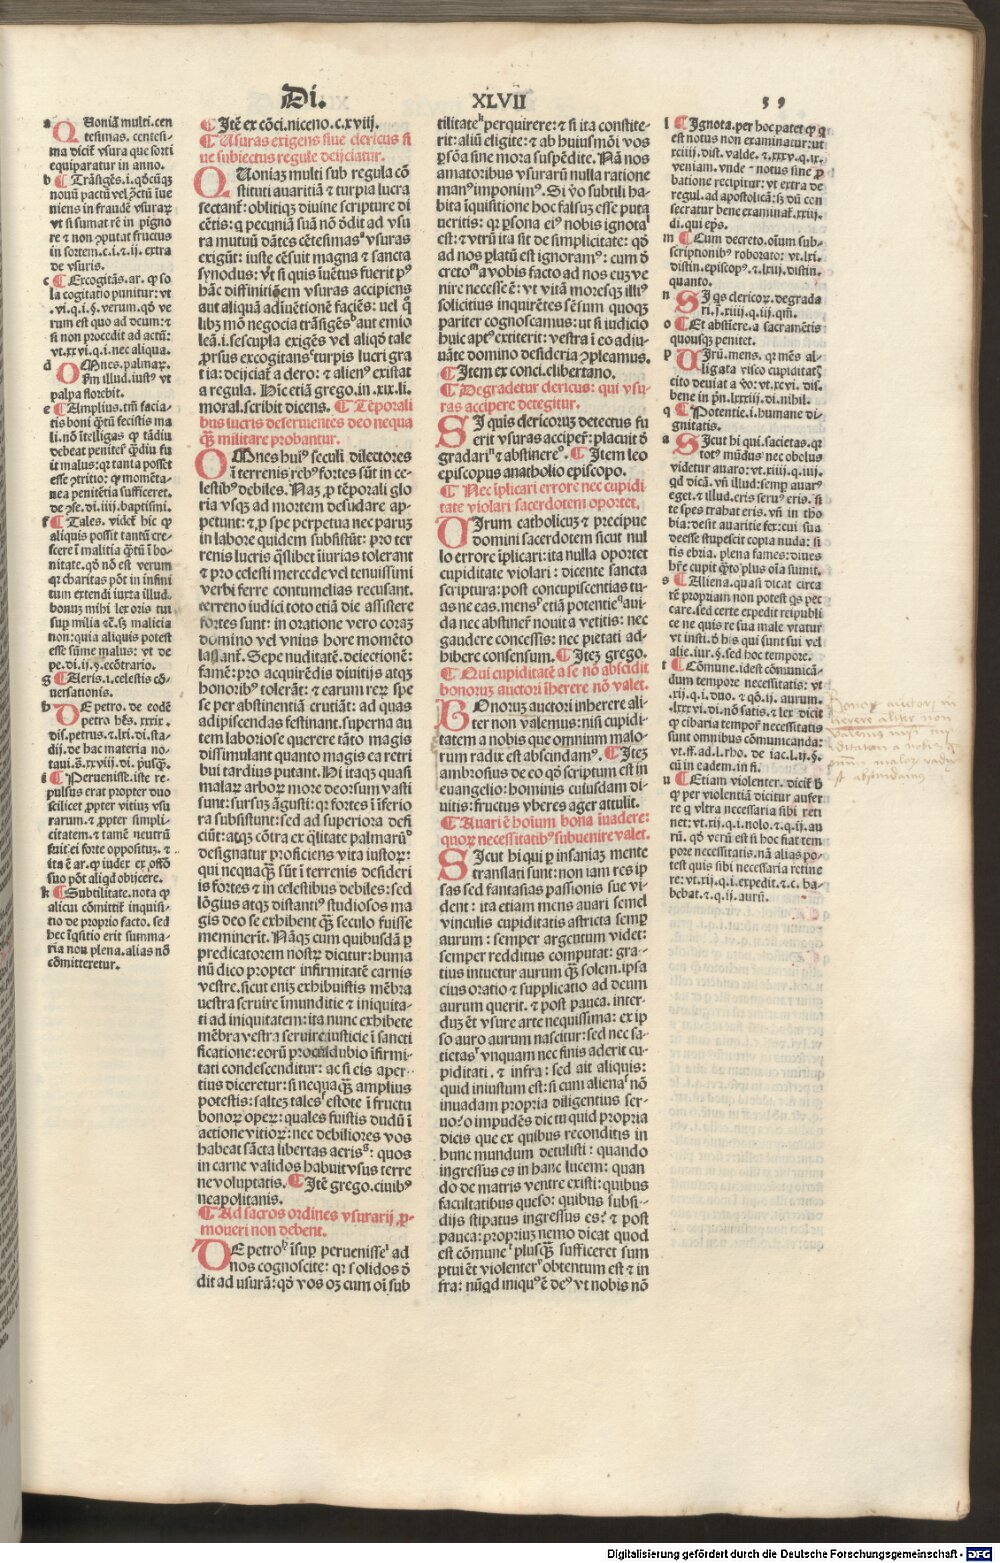 Di.
XLVII
59
a Quoniã multi. cen
tesimas. centesi-
ma dicit̃ vsura que sorti
equiparatur in anno.
b ¶ Trãsigẽs. i. q̃cũqꝫ
nouũ pactũ vel
niens in fraudẽ vsuraꝝ
vt si sumat rẽ in pigno
re ⁊ non cõputat fructus
in sortem. c. i. ⁊ ij. extra
de vsuris.
c ¶ Excogitãs. ar. ꝙ so
la cogitatio punitur: vt
.vi. q. i. §. verum. qõ ve
rum est quo ad deum: ⁊
si non procedit ad actũ:
vt. xxvi. q. i. nec aliqua.
d Omnes. palmaꝝ.
illud. iustꝰ vt
palpa florebit.
e ¶ Amplius. tm̃ facia-
tis boni q̃tũ fecistis ma
li. nõ ĩtelligas ꝙ tãdiu
debeat penitẽs q̃diu fu
it malus: qꝛ tanta posset
esse ꝯtritio: ꝙ momẽta-
nea penitẽtia sufficeret.
de ꝯse. di. iiij. baptismi.
f ¶ Tales. videt̃ hic ꝙ
aliquis possit tantũ cre-
scere ĩ malitia q̃tũ ĩ bo-
nitate. qõ nõ est verum
qꝛ charitas põt in infini
tum extendi iuxta illud.
bonum mihi lex oris tui
suꝑ milia ⁊c̃. sꝫ malicia
non: quia aliquis potest
esse sũme malus: vt de
pe. di. ij. §. ecõtrario.
g ¶ Aeris. i. celestis cõ-
uersationis.
h De petro. de eodẽ
petro hẽs. xxix.
dis. petrus. ⁊. lxi. di. sta-
dij. de hac materia no-
taui. s̃. xxviij. di. p̃usqꝫ.
i ¶ Peruenisse. iste re-
pulsus erat propter duo
scilicet ꝓpter vitiuꝫ vsu
rarum. ⁊ ꝓpter simpli-
citatem. ⁊ tamẽ neutrũ
fuit ei forte oppositũ. ⁊
ita ẽ ar. ꝙ iudex ex offõ
suo põt aliqd obijcere.
k ¶ Subtilitate. nota ꝙ
alicui cõmittit̃ inquisi-
tio de proprio facto. sed
hec ĩqsitio erit summa-
ria non plena. alias nõ
cõmitteretur.
¶ Itẽ ex cõci. niceno. c. xviij.
¶ Usuras exigens siue clericus si
ue subiectus regule deijciatur.
Quoniaꝫ multi sub regula cõ
stituti auaritiã ⁊ turpia lucra
sectant̃: obliti diuine scripture di
cẽtis: q̃ pecuniã suã nõ õdit ad vsu
ra mutuũ dãtes cẽtesimasᵃ vsuras
exigũt: iuste cẽsuit magna ⁊ sancta
synodus: vt si quis ĩuẽtus fuerit pꝰ
hãc diffinitiõem vsuras accipiens
aut aliquã adiuẽtionẽ faciẽs: uel q̃
libꝫ mõ negocia trãsigẽsᵇ aut emio
leã. i. sescupla exigẽs vel aliqd tale
ꝓrsus excogitansᶜ turpis lucri gra
tia: deijciat̃ a clero: ⁊ alienꝰ existat
a regula. Hic etiã grego. in. xix. li.
moral. scribit dicens. ¶ Tẽporali
bus lucris deseruientes deo nequa
q̃ militare probantur.
Omnes huiꝰ seculi dilectores
ĩ terrenis rebꝰ fortes sũt in ce-
lestibꝰ debiles. Naꝫ ꝓ tẽporali glo
ria vsqꝫ ad mortem desudare ap-
petunt: ⁊ ꝓ spe perpetua nec paruꝫ
in labore quidem subsistũt: pro ter
renis lucris q̃slibet ĩiurias tolerant
⁊ pro celesti mercede vel tenuissimi
verbi ferre contumelias recusant.
terreno iudici toto etiã die assistere
fortes sunt: in oratione vero coraꝫ
domino vel vnius hore momẽto
lassant̃. Sepe nuditatẽ. deiectionẽ:
famẽ: pro acquirẽdis diuitijs atqꝫ
honoribꝰ tolerãt: ⁊ earum reꝝ spe
se per abstinentiã cruciãt: ad quas
adipiscendas festinant. superna au
tem laboriose querere tãto magis
dissimulant quanto magis ea retri
bui tardius putant. Hi itaqꝫ quasi
malaꝝ arboꝝ more deorsum vasti
sunt: sursuꝫ ãgusti: qꝛ fortes ĩ ĩferio
ra subsistunt: sed ad superiora defi
ciũt: atqꝫ cõtra ex q̃litate palmarũᵈ
designatur proficiens vita iustoꝝ:
qui nequaqꝫ sũt ĩ terrenis desideri
is fortes ⁊ in celestibus debiles: sed
lõgius atqꝫ distantiꝰ studiosos ma
gis deo se exhibent qꝫ seculo fuisse
meminerit. Nãqꝫ cum quibusdã ꝑ
predicatorem nostꝝ dicitur: huma
nũ dico propter infirmitatẽ carnis
vestre. sicut eniꝫ exhibuistis mẽbra
vestra seruire ĩmunditie ⁊ iniquita-
ti ad iniquitatem: ita nunc exhibete
mẽbra vestra seruire iusticie ĩ sancti
ficatione: eorũ proculdubio ĩfirmi-
tati condescenditur: ac si eis aper-
tius diceretur: si nequaqꝫ amplius
potestis: salteꝫ talesᶠ estote ĩ fructu
bonoꝝ operꝝ: quales fuistis dudũ ĩ
actione vitioꝝ: nec debiliores vos
habeat sãcta libertas aerisᵍ: quos
in carne validos habuit vsus terre
ne voluptatis. ¶ Itẽ grego. ciuibꝰ
neapolitanis.
¶ Ad sacros ordines vsurarij ꝓ-
moueri non debent.
De petroʰ ĩsuꝑ peruenisseⁱ ad
nos cognoscite: qꝛ solidos õ
dit ad usurã: qõ vos oꝫ cum oĩ sub
tilitateᵏ perquirere: ⁊ si ita constite-
rit: aliũ eligite: ⁊ ab huiusmõi vos
ꝑsõa sine mora suspẽdite. Nã nos
amatoribus vsurarũ nulla ratione
manꝰ imponimꝰ. Si vo subtili ha-
bita ĩquisitione hoc falsuꝫ esse puta
ueritis: qꝛ ꝑsona eiꝰ nobis ignotaˡ
est: ⁊ vtrũ ita sit de simplicitate: qõ
ad nos platũ est ignoramꝰ: cum õ
cretoᵐ a vobis facto ad nos euꝫ ve
nire necesse ẽ: vt vitã moresqꝫ illiꝰ
solicitius inquirẽtes sẽsum quoqꝫ
pariter cognoscamus: ut si iudicio
huic aptꝰ extiterit: vestra ĩ eo adiu-
uãte domino desideria ꝯpleamus.
¶ Item ex conci. elibertano.
¶ Degradetur clericus: qui vsu-
ras accipere detegitur.
Si quis clericoruꝫ detectus fu
erit vsuras acciper̃: placuit õ
gradariⁿ ⁊ abstinereᵒ. ¶ Item leo
episcopus anatholio episcopo.
¶ Nec ĩplicari errore nec cupidi
tate violari sacerdotem oportet.
Virum catholicuꝫ ⁊ precipue
domini sacerdotem sicut nul
lo errore ĩplicari: ita nulla oportet
cupiditate violari: dicente sancta
scriptura: post concupiscentias tu-
as ne eas. mensᵖ etiã potentieᑫ aui-
da nec abstiner̃ nouit a vetitis: nec
gaudere concessis: nec pietati ad-
hibere consensum. ¶ Itẽꝫ grego.
¶ Qui cupiditatẽ a se nõ abscidit
bonoruꝫ auctori ĩherere nõ valet.
Bonoruꝫ auctori inherere ali-
ter non valemus: nisi cupidi-
tatem a nobis que omnium malo-
rum radix est abscindamꝰ. ¶ Itẽꝫ
ambrosius de eo qõ scriptum est in
euangelio: hominis cuiusdam di-
uitis: fructus vberes ager attulit.
¶ Auari ẽ hoĩum bona ĩuadere:
quoꝝ necessitatibꝰ subuenire valet.
Sicut hi qui ꝑ insaniaꝫ mente
translati sunt: non iam res ip
sas sed fantasias passionis sue vi-
dent: ita etiam mens auari semel
vinculis cupiditatis astricta semꝑ
aurum: semper argentum videt:
semper redditus computat: gra-
tius intuetur aurum qꝫ solem. ipsa
eius oratio ⁊ supplicatio ad deum
aurum querit. ⁊ post pauca. inter-
duꝫ ẽt vsure arte nequissima: ex ip
so auro aurum nascitur: sed nec sa-
tietasʳ vnquam nec finis aderit cu-
piditati. ⁊ infra: sed ait aliquis:
quid iniustum est: si cum alienaˢ nõ
inuadam propria diligentius ser-
uo? o impudẽs dictu quid propria
dicis que ex quibus reconditis in
hunc mundum detulisti: quando
ingressus es in hanc lucem: quan
do de matris ventre existi: quibus
facultatibus queso: quibus subsi-
dijs stipatus ingressus es? ⁊ post
pauca: propriuꝫ nemo dicat quod
est cõmuneᵗ plusqꝫ sufficeret sum
ptui ẽt violenterᵘ obtentum est ⁊ in
fra: nũqd iniquꝰ ẽ deꝰ vt nobis nõ
l ¶ Ignota. per hoc patet ꝙ q
est notus non examinatur: ut
xciiij. dist. valde. ⁊. xxxv. q. ix.
veniam. vnde notus sine ꝓ
batione recipitur: vt extra de
regul. ad apostolicã: sꝫ dũ con
secratur bene examinat̃. xxiij.
di. qui ep̃s.
m ¶ Cum decreto. oĩum sub-
scriptionibꝰ roborato: vt. lxi.
distin. episcopꝰ. ⁊. lxvi. distin.
quanto.
n Si qs clericoꝝ. degrada
ri. j̃. xiiij. q. iij. qñ.
o ¶ Et abstiere. a sacramẽtis
quousqꝫ penitet.
p Virũ. mens. qꝛ mẽs al-
ligata visco cupiditatꝭ
cito deuiat a vo: vt. xcvi. dis.
bene in pñ. lxxxij. di. nihil.
q ¶ Potentie. i. humane di-
gnitatis.
a Sicut hi qui. sacietas. qꝛ
totꝰ mũdus nec obolus
videtur auaro: vt. xiiij. q. iiij.
qd dicã. vñ illud: semꝑ auarꝰ
eget. ⁊ illud. eris seruꝰ eris. si
te spes trahat eris. vñ in tho
bia: desit auaritie fex: cui sua
deesse stupescit copia nuda: si
tis ebria. plena fames: diues
hr̃e cupit q̃to plus oĩa sumit.
s ¶ Aliena. quasi dicat circa
rẽ propriam non potest qs pec
care. sed certe expedit reipubli
ce ne quis re sua male vtatur
vt insti. õ his qui sunt sui vel
alie. iur. §. sed hoc tempore.
t ¶ Cõmune. idest cõmunicã-
dum tempore necessitatis: vt
.xij. q. i. duo. ⁊. q. ij. aurum.
.lxxxvi. di. nõ satis. ⁊ lex dicit
ꝙ cibaria tempor̃ necessitatis
sunt omnibus cõmunicanda:
vt. ff. ad. l. rho. de iac. l. ij. §.
cũ in eadem. in fi.
u ¶ Etiam violenter. dicit̃
ꝙ per violentiã dicitur aufer
re q ultra necessaria sibi reti
net: vt. xij. q. i. nolo. ⁊. q. ij. au
rũ. qõ verũ est si hoc fiat tem
pore necessitatis. nã alias po-
test quis sibi necessaria retine
re: vt. xij. q. i. expedit. ⁊. c. ha-
bebat. ⁊. q. ij. aurũ.
Bonoꝝ auctori in
herere aliter non
valemus nisi cu
piditatem a nobis q̃
omniũ maloꝝ radix
est abscindamꝰ
Digitalisierung gefördert durch die Deutsche Forschungsgemeinschaft - DFG